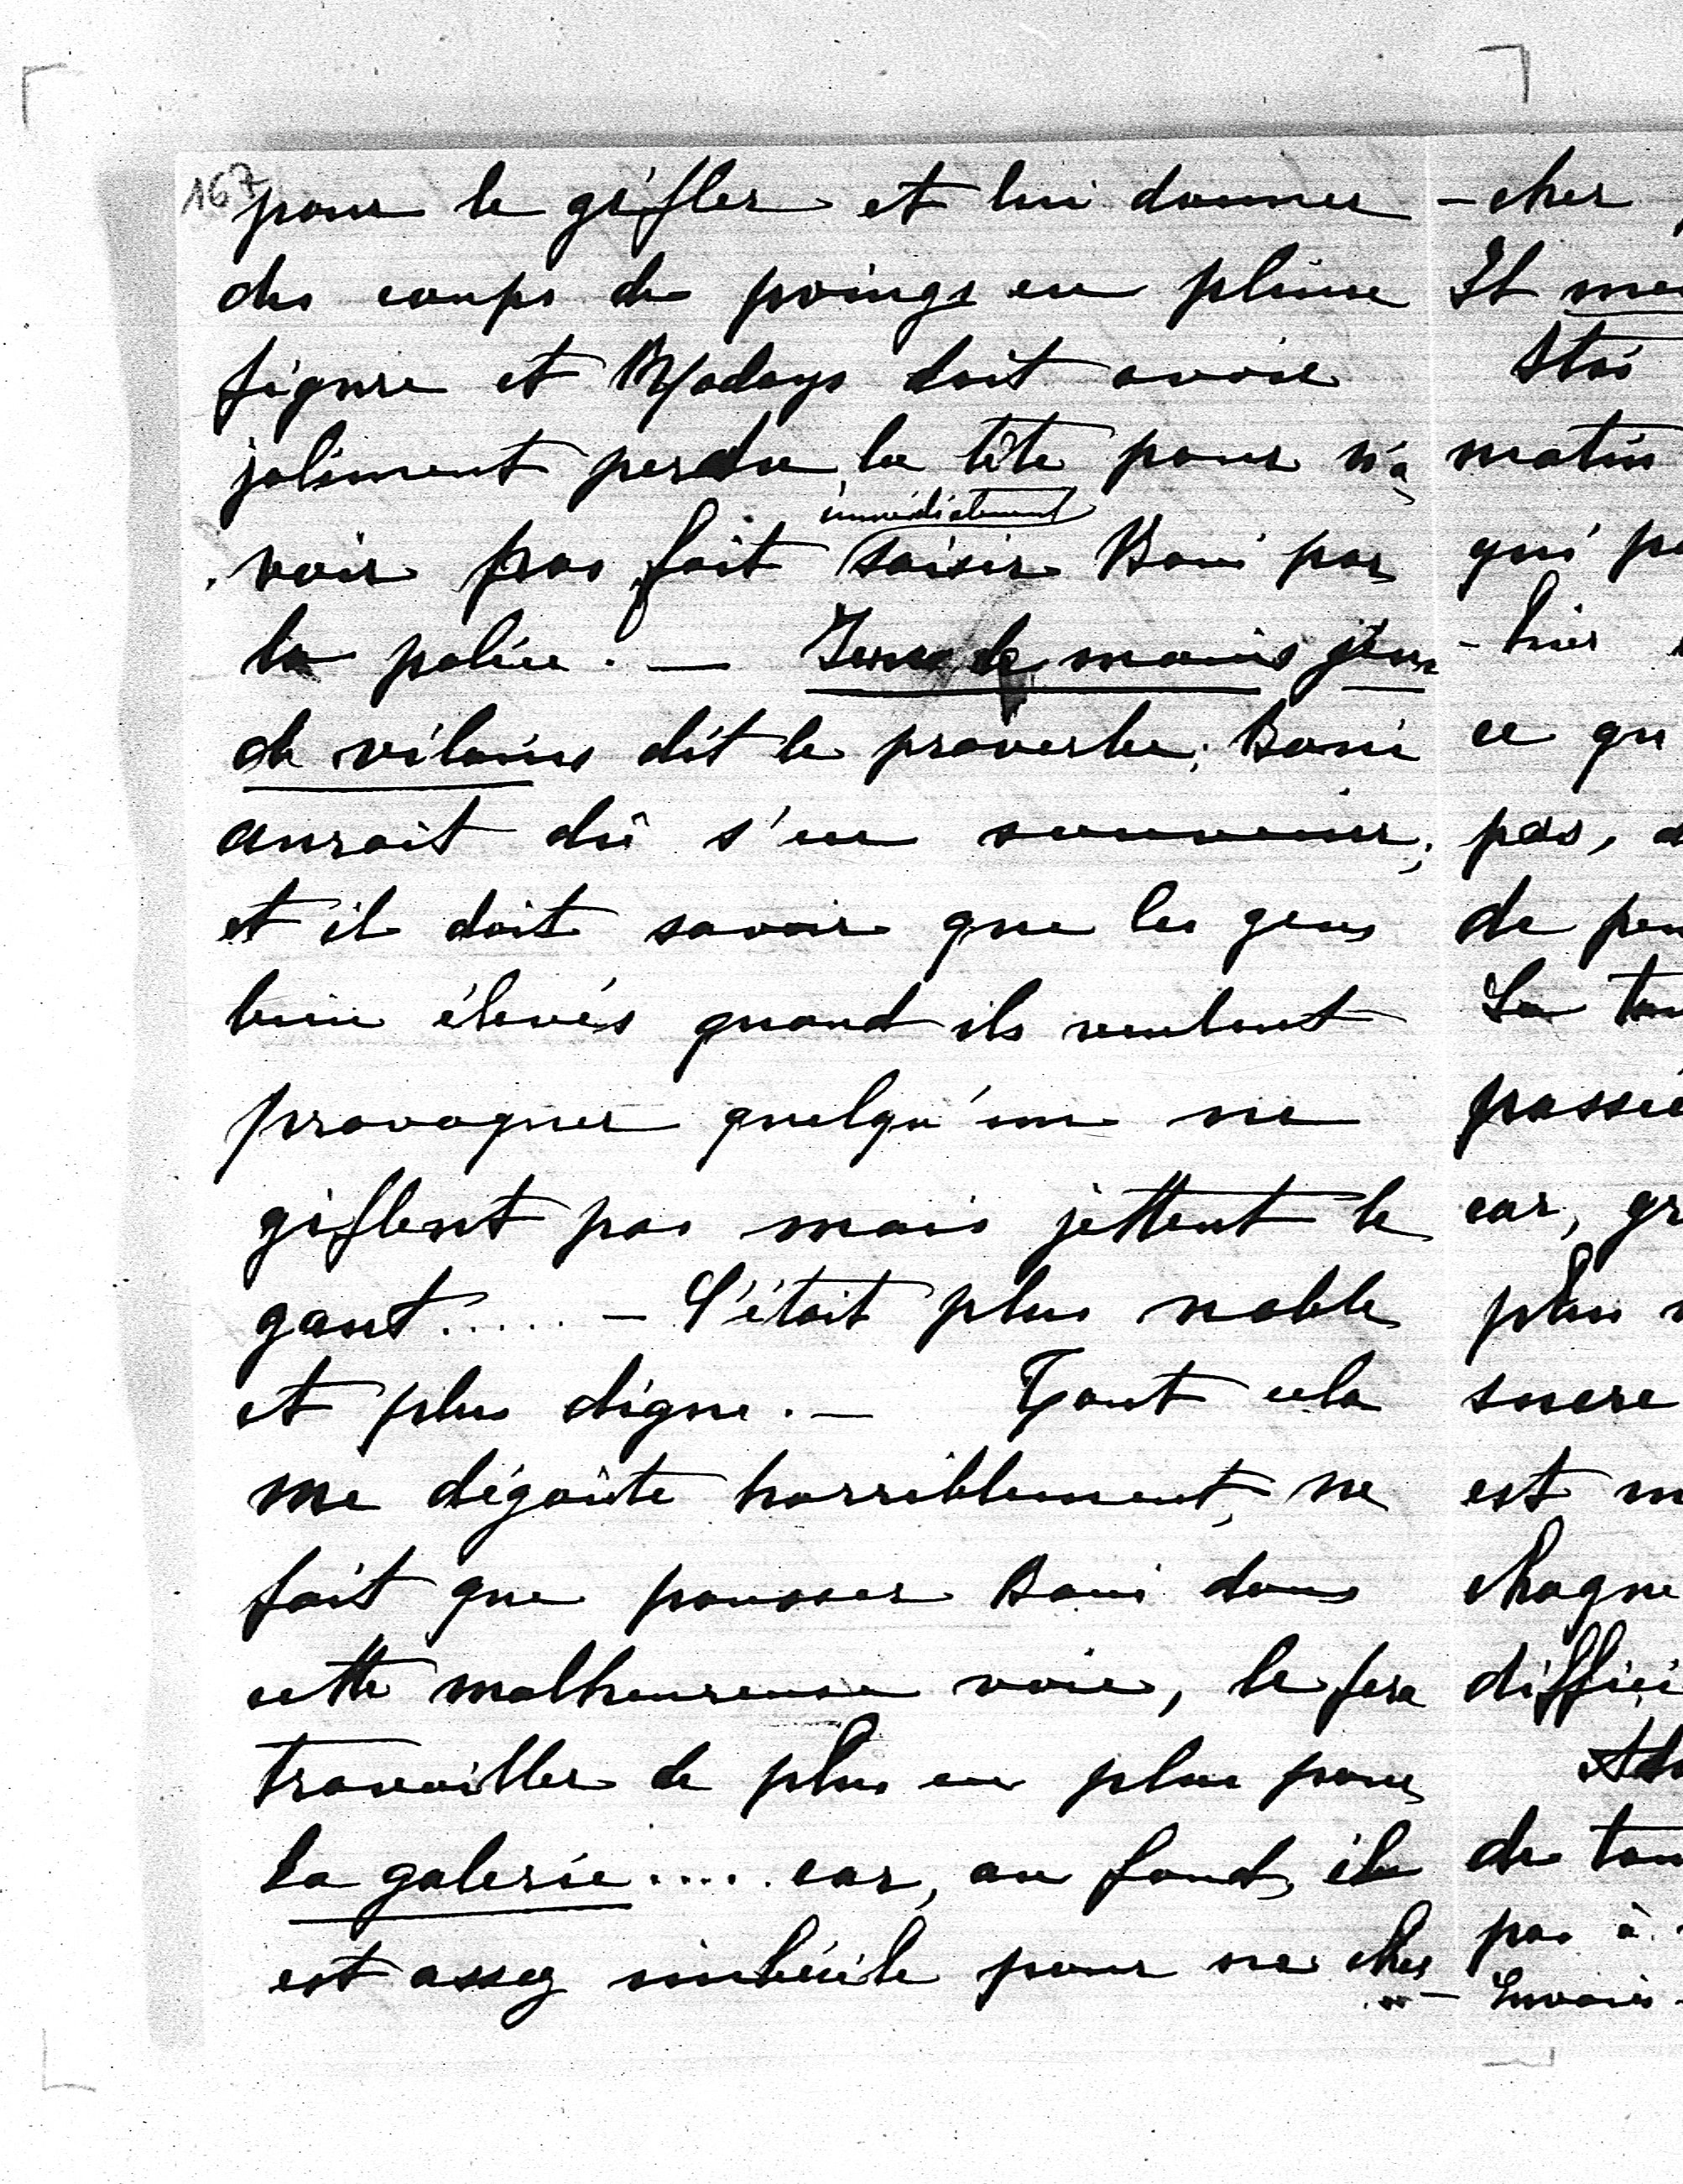 167
pour le gifler et lui donner
des coups de poings en pleine
figure et Rodays doit avoir
joliment perdu la tête pour n'a
immédiatement
voir pas fait saisir Boni par
la police. — Jeux de mains jeux
de vilains dit le proverbe; Boni
aurait dû s'en souvenir;
et il doit savoir que les gens
bien élevés quand ils veulent
provoquer quelqu'un ne
giflent pas mais jettent le
gant..... — C'était plus noble
et plus digne. — Tout cela
me dégoûte horriblement, ne
fait que pousser Boni dans
cette malheureuse voie, le fera
travailler de plus en plus pour
la galerie.... car, au fond, il
est assez imbécile pour ne cher
-cher
Il
matin
qui
-hier
ce qu
pas,
de
La
passée
car, gr
plus
sucre
est
chaque
diffici
de
pas à